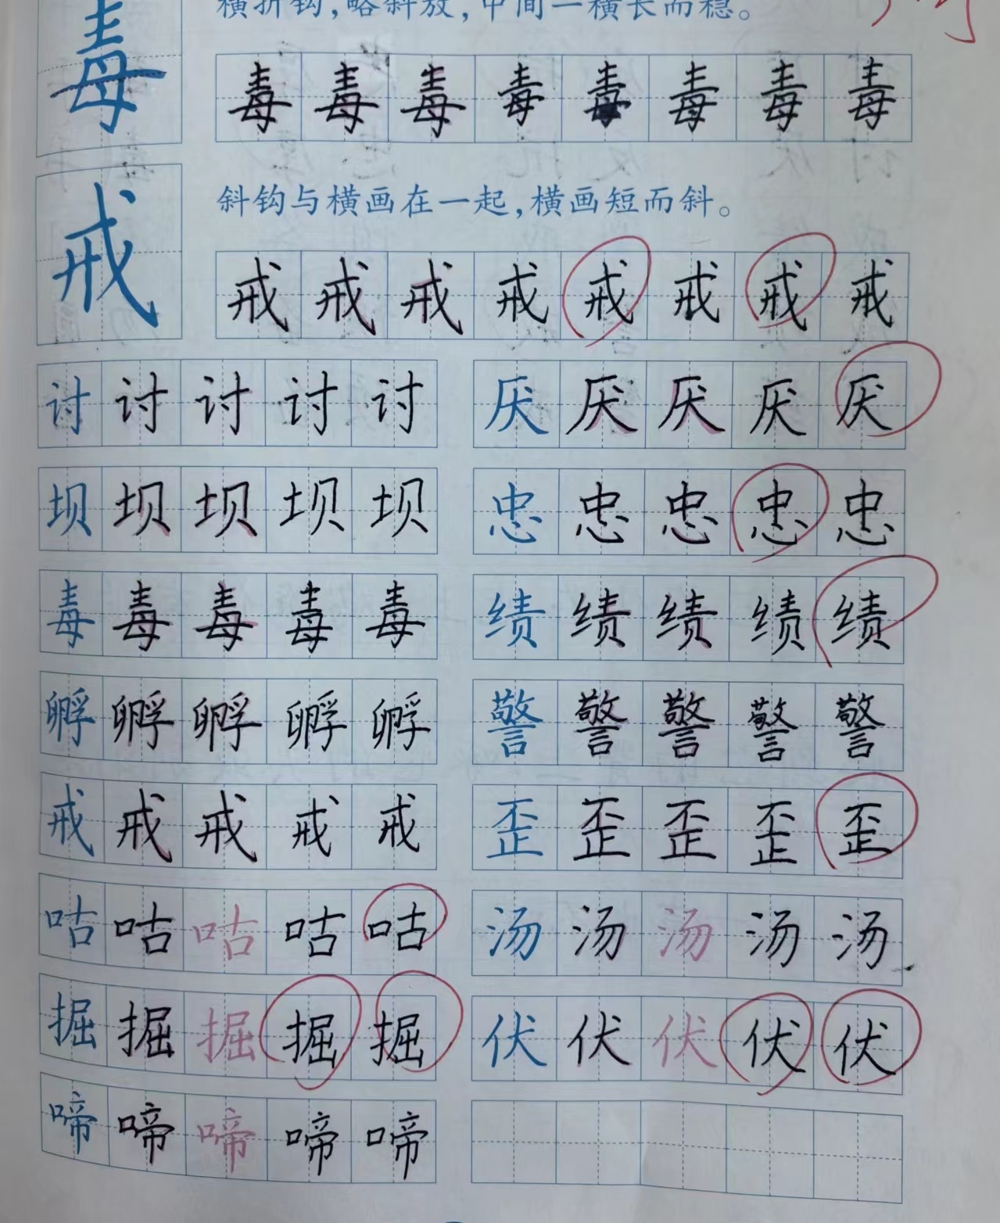 横折钩，略斜放，中间一横长而稳。
毒 毒 毒 毒 毒 毒 毒 毒 毒
斜钩与横画在一起，横画短而斜。
戒 戒 戒 戒 戒 戒 戒 戒 戒
讨 讨 讨 讨 讨 厌 厌 厌 厌 厌
坝 坝 坝 坝 坝 忠 忠 忠 忠 忠
毒 毒 毒 毒 毒 绩 绩 绩 绩 绩
孵 孵 孵 孵 孵 警 警 警 警 警
戒 戒 戒 戒 戒 歪 歪 歪 歪 歪
咕 咕 咕 咕 咕 汤 汤 汤 汤 汤
掘 掘 掘 掘 掘 伏 伏 伏 伏 伏
啼 啼 啼 啼 啼